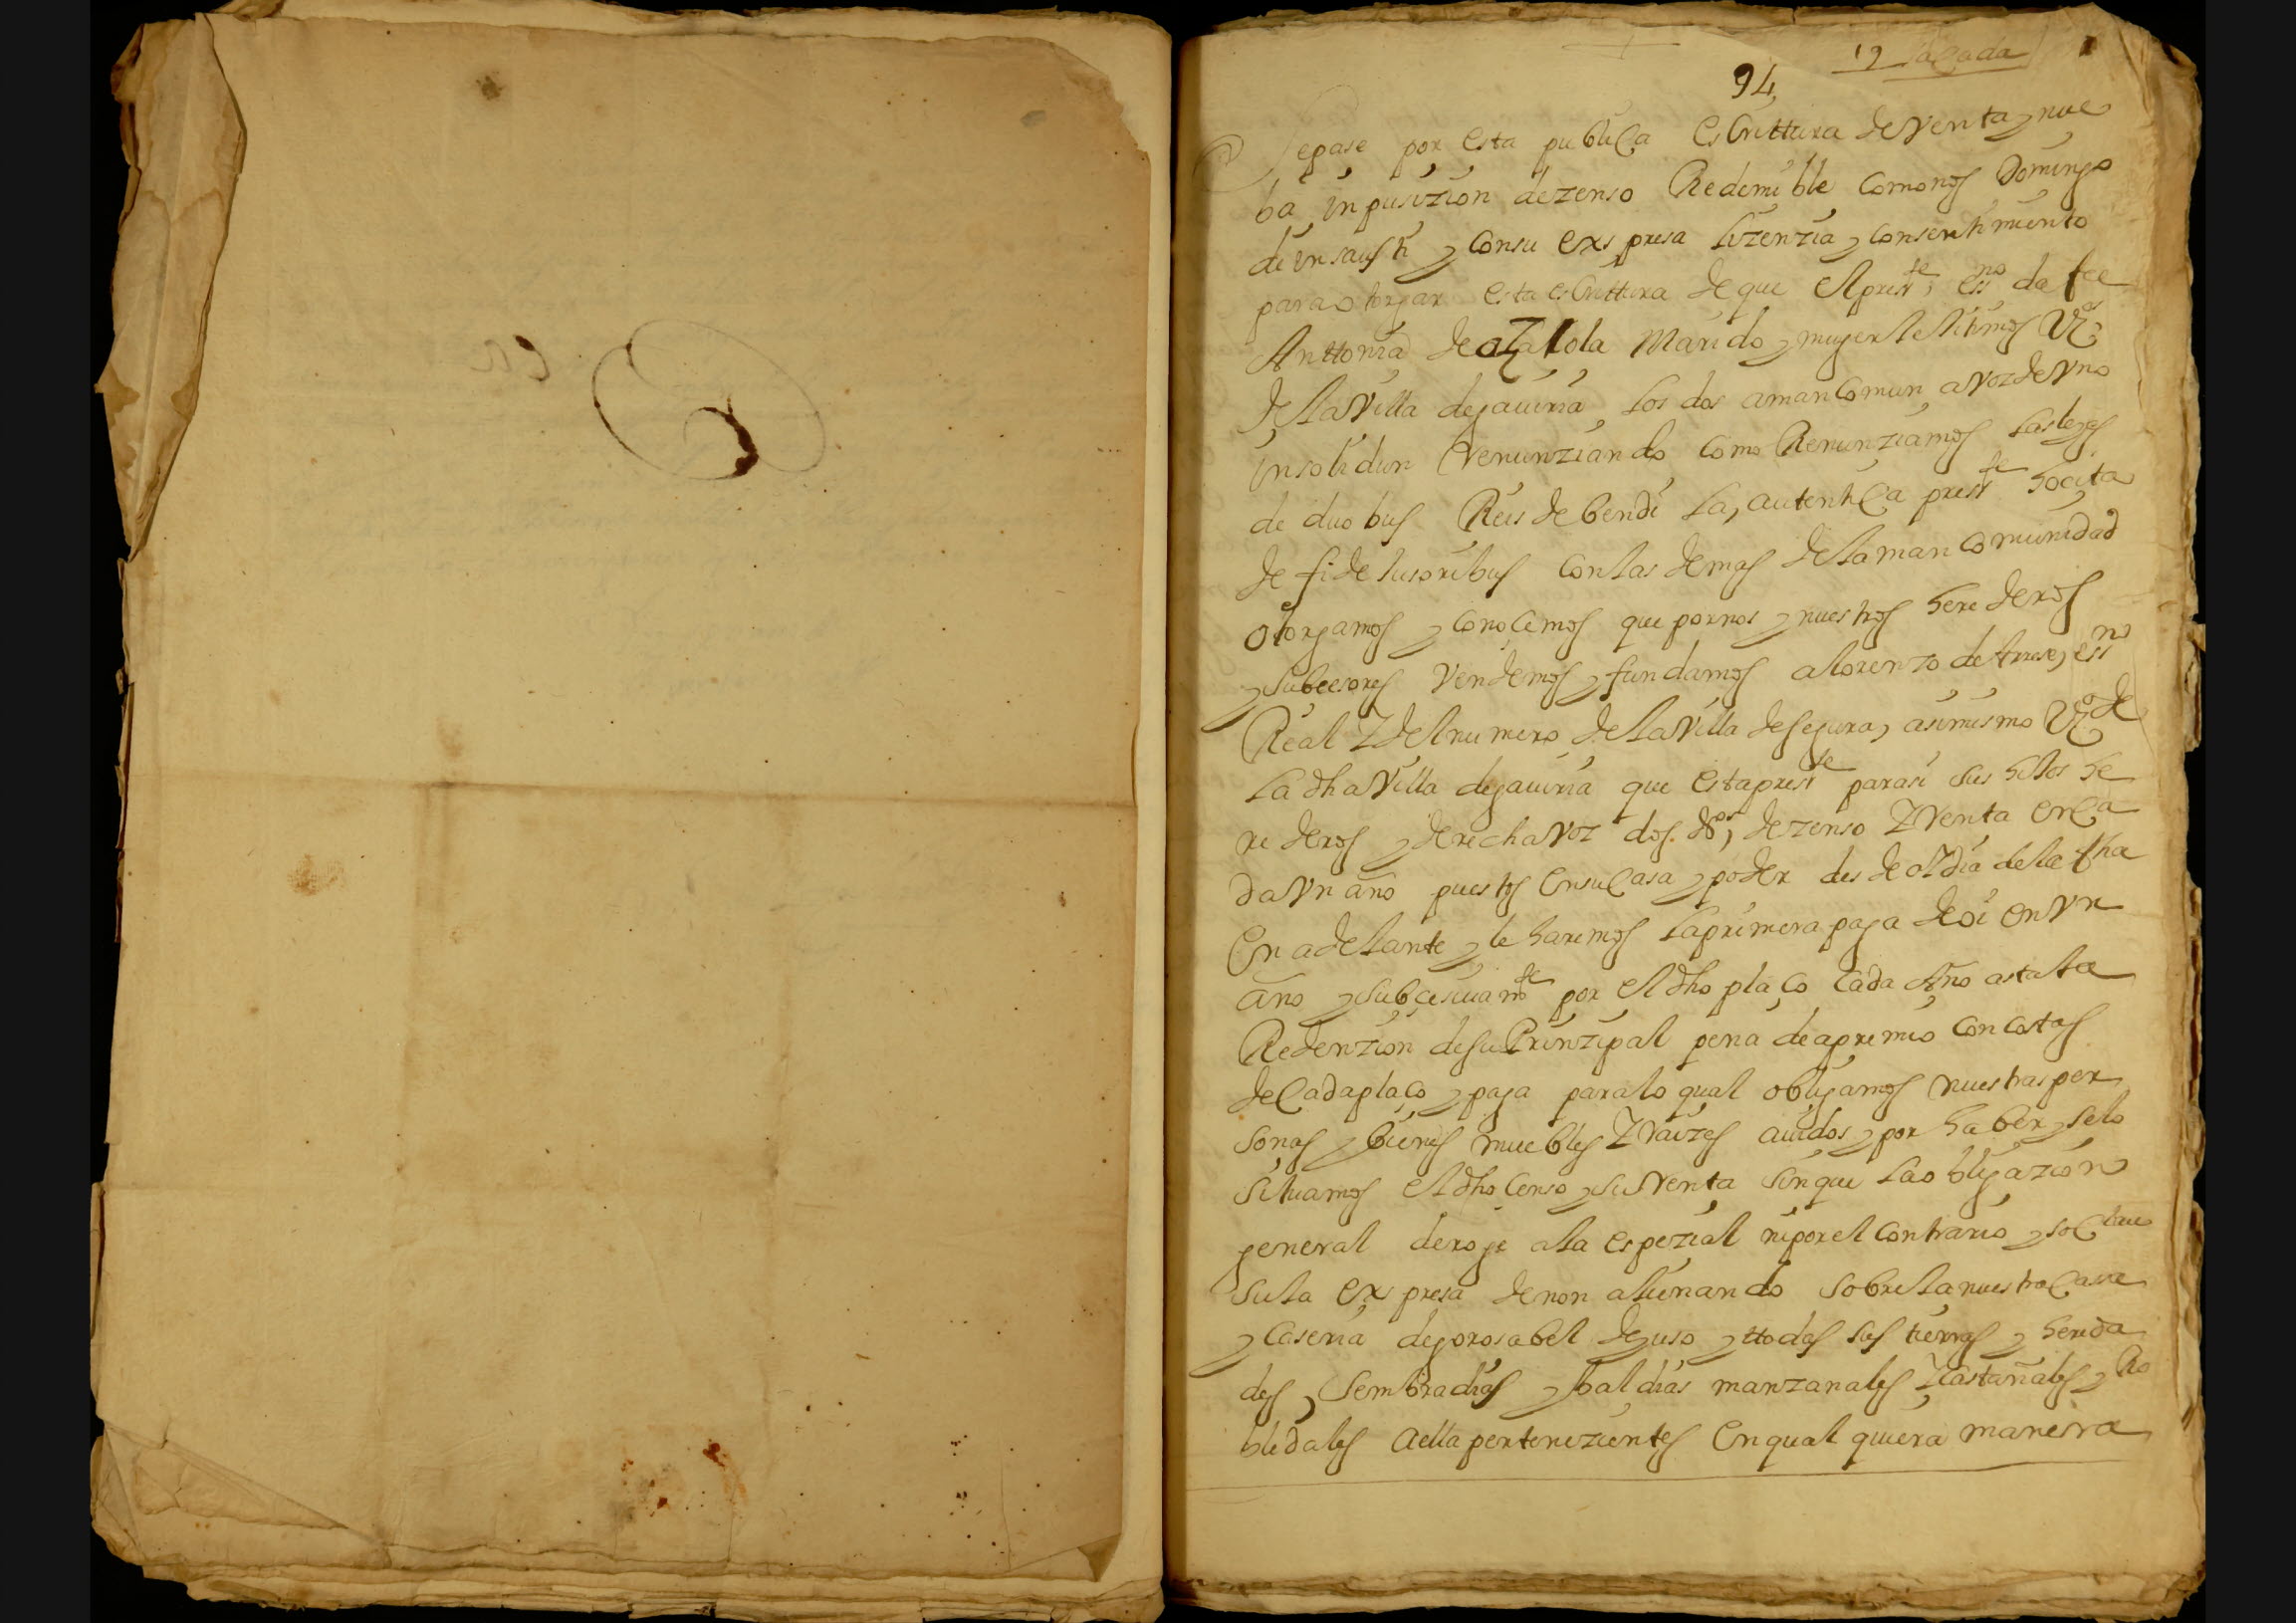 19 Sacada
94
Sepase por esta publica escrittura de venta y nue
ba inpusizion de zenso Redemible como nos Domingo
de insausti y con su expresa lizenzia y consentimiento
para otorgar esta escrittura de que el press.te ess.no da fee
Anttonia de Marido y mujer lexitimos Vz.os
de la Villa de gauiria los dos a man comun a voz de Vno
insolidun renunziando como Renunziamos las leyes
de duobus Reis debendi la, autentica press.te hocita
de fide iusoribus con las demas de la man comunidad
otorgamos y conocemos que por nos y nuestros herederos
y subcesores vendemos y fundamos a lorenzo de Arrese, ess.no
Real Y del numero de la villa de segura, asimismo Vz.o de
la dha villa de gauiria que esta press.te para si sus hijos he
rederos y derecha voz dos d.os, de zenso Y renta en ca
da vn año puestos en su casa y poder desde oy dia de la fha
en adelante y le haremos la primera paga de oi en vn
año y subcesiuam.te por el dho plaço cada Año asta la
Redenzion de su Prinzipal pena de apremio con costas
de cada plaço y paga para lo qual obligamos nuestras per
sonas y bienes muebles Y raizes auidos y por haber y selo
situamos el dho Censo y su renta sin que la obligazion
general deroge a la espezial ni por el contrario y so clau
sula expresa de non alienando sobre la nuestra Cassa
y caseria de gorosabel de yuso y ttodas sus tierras y hereda
des, Sembradias y baldias manzanales Y castañales y Ro
bledales a ella pertenezientes en qual quiera manera